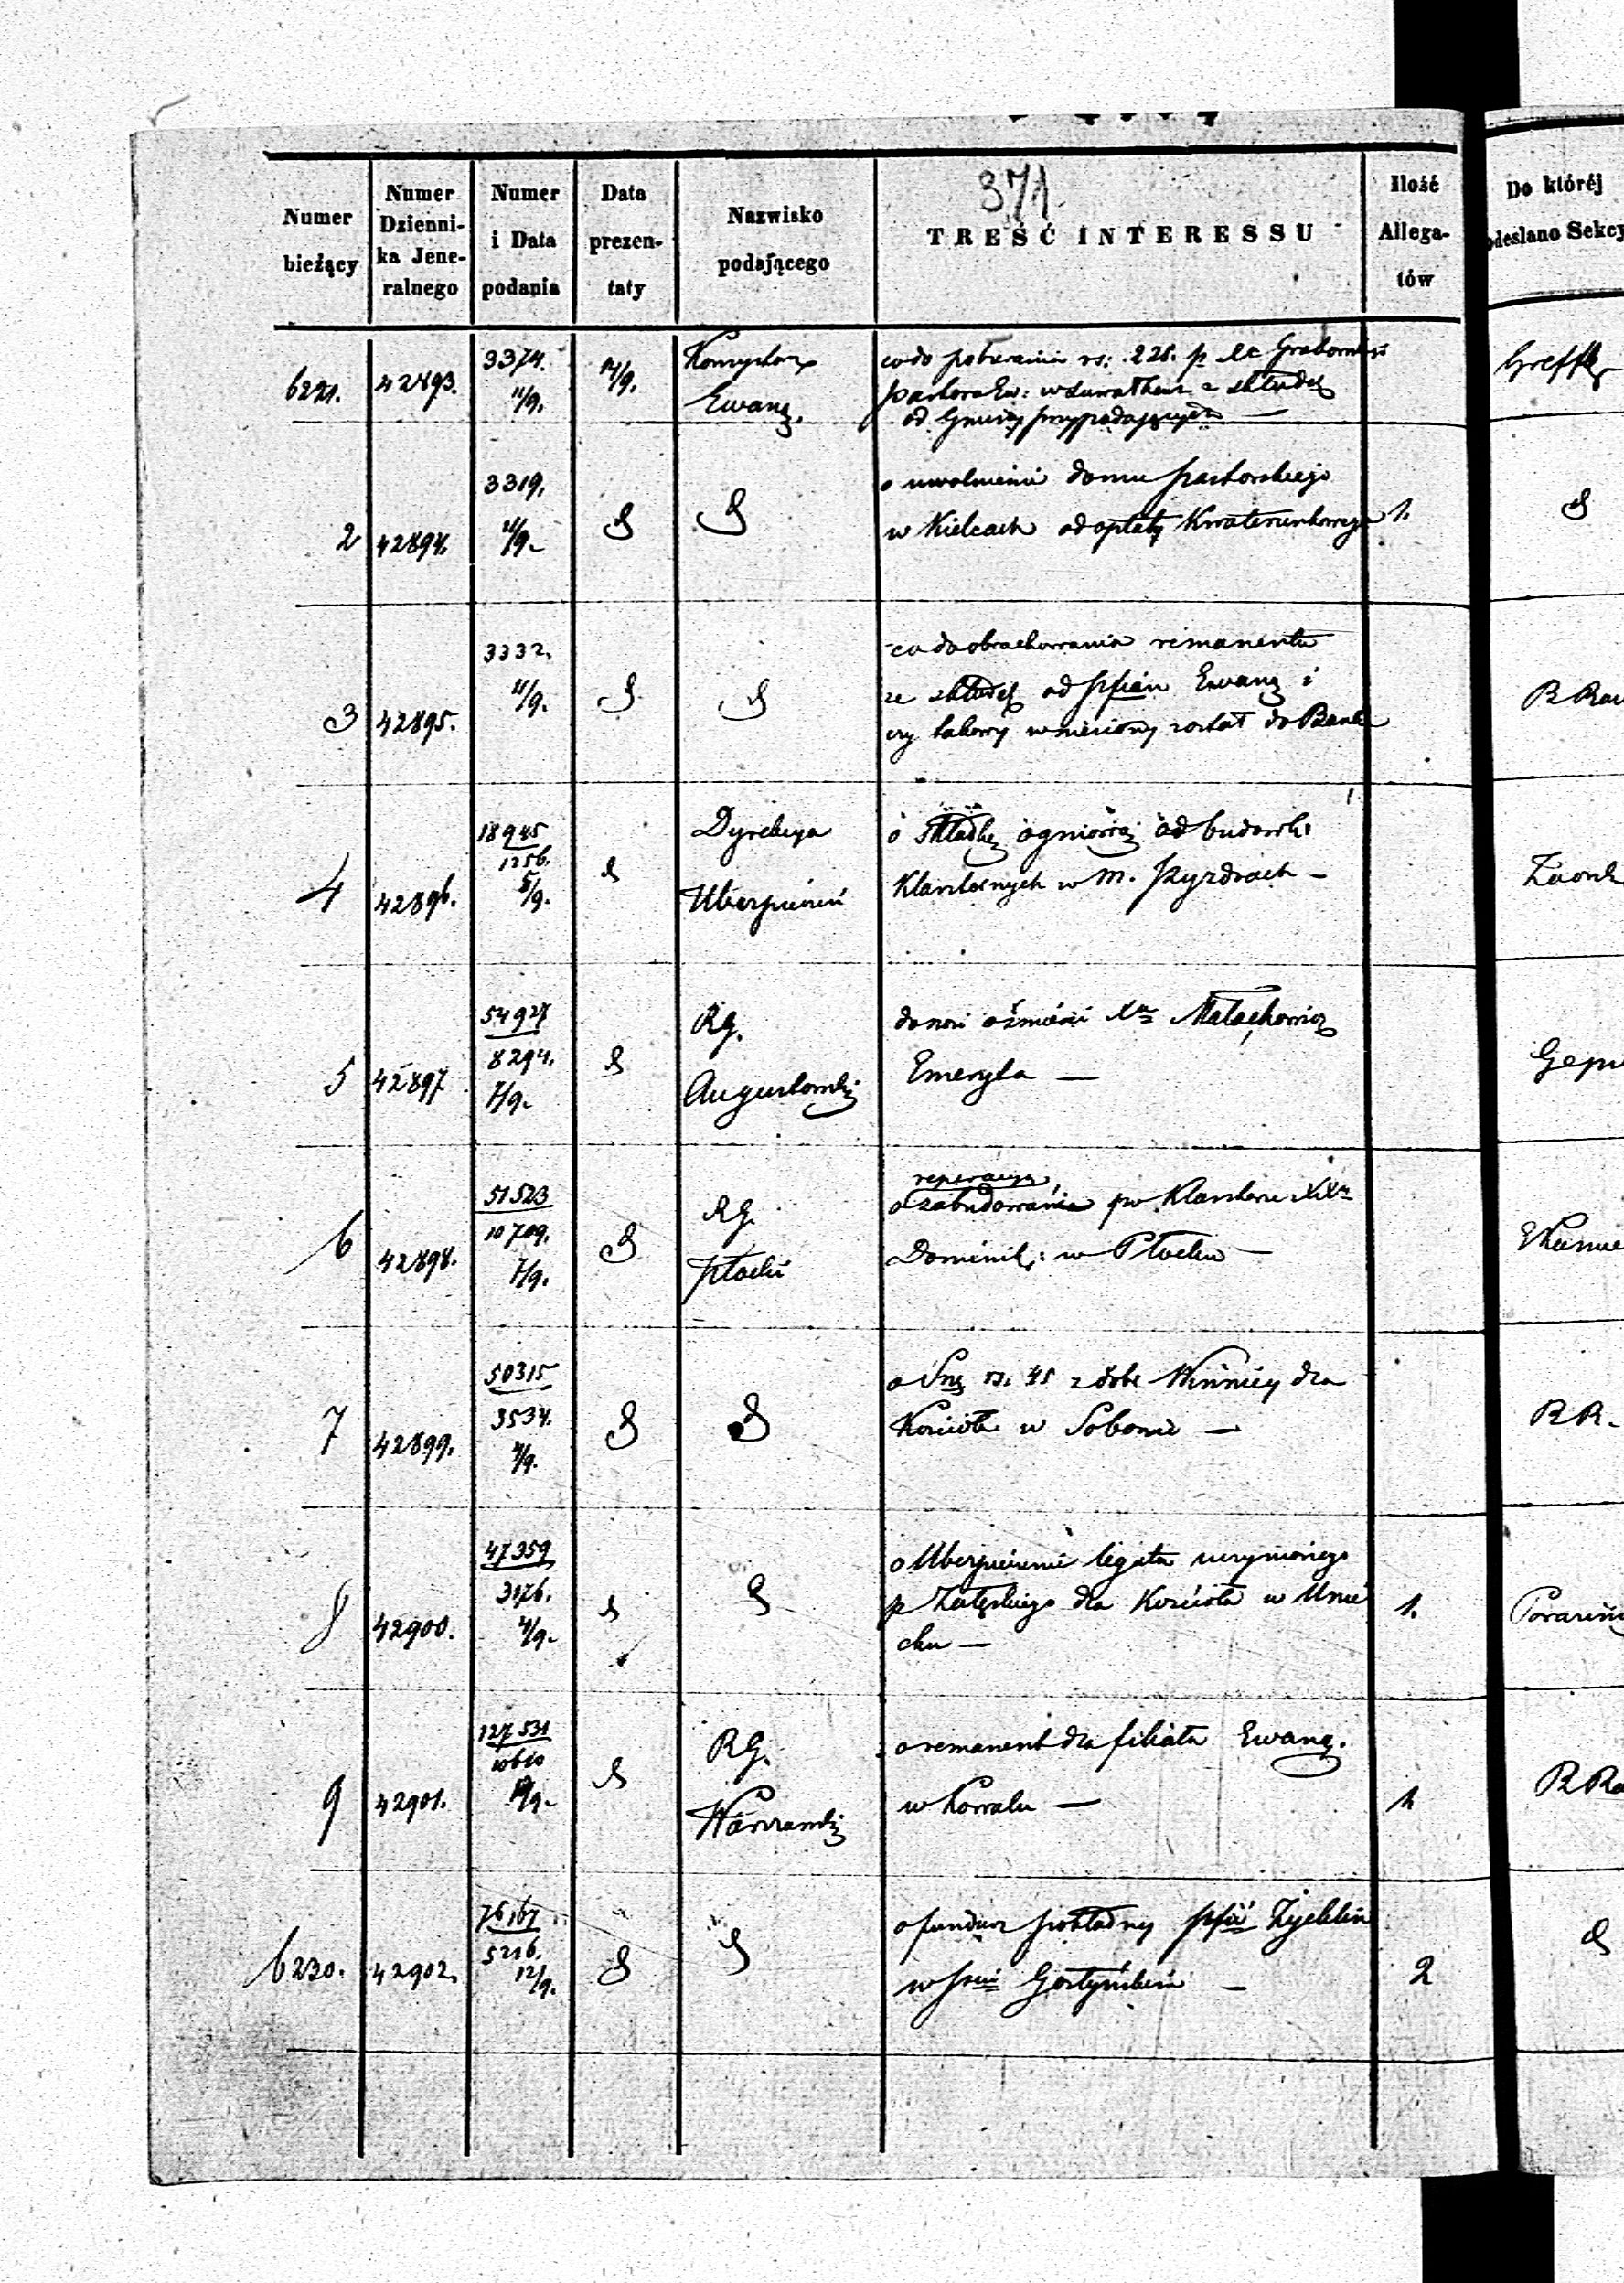 371.
Numer bieżący
Numer Dzienni- ka Jene- ralnego
Numer i Data podania
Data prezen- taty
Nazwisko podającego
TREŚĆ INTERESSU
Ilość Allega- tów
Do której
odesłano Sekcy
6221. 42893. 3374. 11/9. 14/9.
Konsystorz
Ewang.
co do pobierania rs: 225. p
Pastora Ew: w Suwałkach z składek
od Gminy przypadających —
2 42894. 3319. 11/9.
o uwolnienie domu pastorskiego
w Kielcach od opłaty Kwaterunkowego 1.
3 42895. 3332. 11/9.
co do obrachowania remanentu
ze składek od pfian Ewang i
czy takowy wniesiony został do Banku
R Ra
4 42896. 18945 1256. 5/9.
Dyrekcya
Ubezpieczeń
o składkę ogniową od budowli
Klasztornych w m. Pyzdrach —
5 42897 54927 8294. 7/9.
RG.
Augustowski
donosi o śmierci Xa Małachowicz
Emeryta —
6 42898. 51523 10709. 7/9.
RG.
Płocki
reperacyę
o zabudowania po Klasztorze XXw
Dominik: w Płocku —
7 42899. 50315 3534. 4/9.
o Smę rs. 45 z dóbr Winnicy dla
Kościoła w —
R R.
8 42900. 47359 3176. 4/9.
o Ubezpieczenie legatu uczynionego
p Załęskiego dla Kościoła w Unie
cku — 1.
9 42901. 127531 10610 /9.
RG.
Warszawski
o remanent dla filiału Ewang.
w Kowalu — 1
R Ra
6230. 42902. 76167 5216. 12/9.
o fundusz pokładny pfii Żychlin
w pcie Gostyńskim — 2